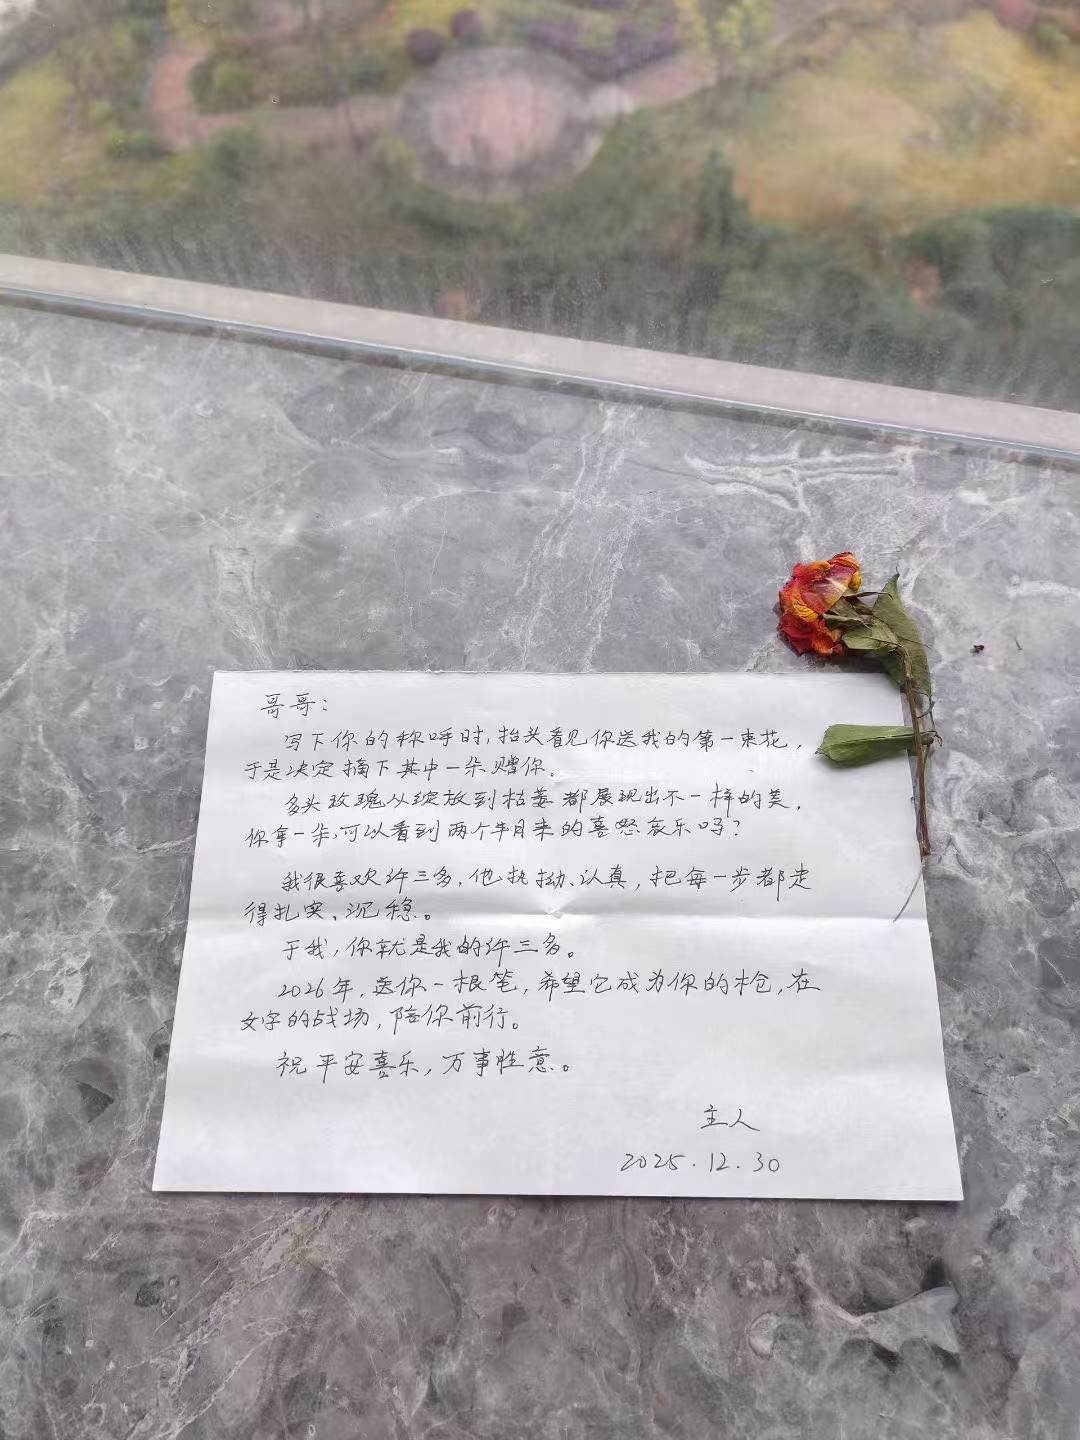 哥哥：
写下你的称呼时，抬头看见你送我的第一束花，
于是决定摘下其中一朵赠你。
多头玫瑰从绽放到枯萎都展现出不一样的美，
你拿一朵，可以看到两个半月来的喜怒哀乐吗？
我很喜欢许三多，他执拗、认真，把每一步都走
得扎实、沉稳。
于我，你就是我的许三多。
2026年，送你一根笔，希望它成为你的枪，在
文字的战场，陪你前行。
祝平安喜乐，万事胜意。
主人
2025.12.30